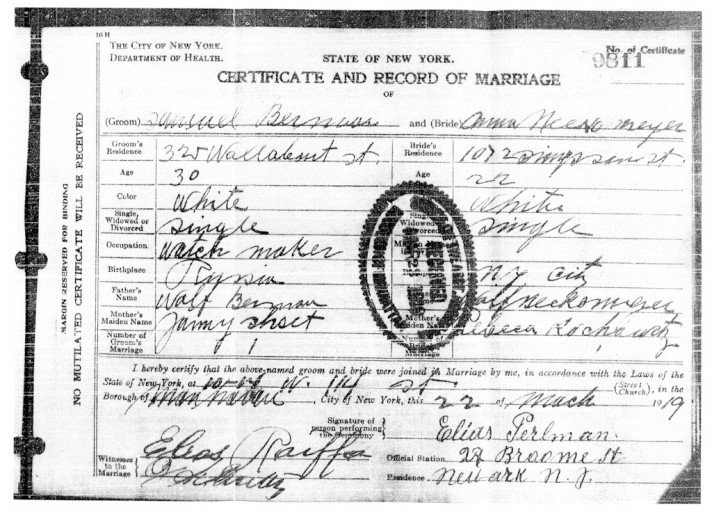 10 H
THE CITY OF NEW YORK.
DEPARTMENT OF HEALTH.
STATE OF NEW YORK.
No. of Certificate
9811
CERTIFICATE AND RECORD OF MARRIAGE
OF
(Groom) Samuel Berman and (Bride) Anna
Groom's Residence 325 Wallabout st. Bride's Residence 1072 Simpson st.
Age 30 Age 22
Color White White
Single, Widowed or Divorced Single Single
Occupation Watch maker
Birthplace N.Y. City
Father's Name Wolf Berman Wolf
Mother's Maiden Name Mother's Maiden Name Rebecca
Number of Groom's Marriage 1 Number of Bride's Marriage 1
I hereby certify that the above-named groom and bride were joined in Marriage by me, in accordance with the Laws of the
State of New York, at W. 114 st (Street Church), in the
Borough of Manhattan, City of New York, this 22 of March 1919
Signature of person performing the Ceremony Elias Perlman.
Witnesses to the Marriage Elias
Official Station 27 Broome st
Residence Newark N.J.
MARGIN RESERVED FOR BINDING
NO MUTILATED CERTIFICATE WILL BE RECEIVED